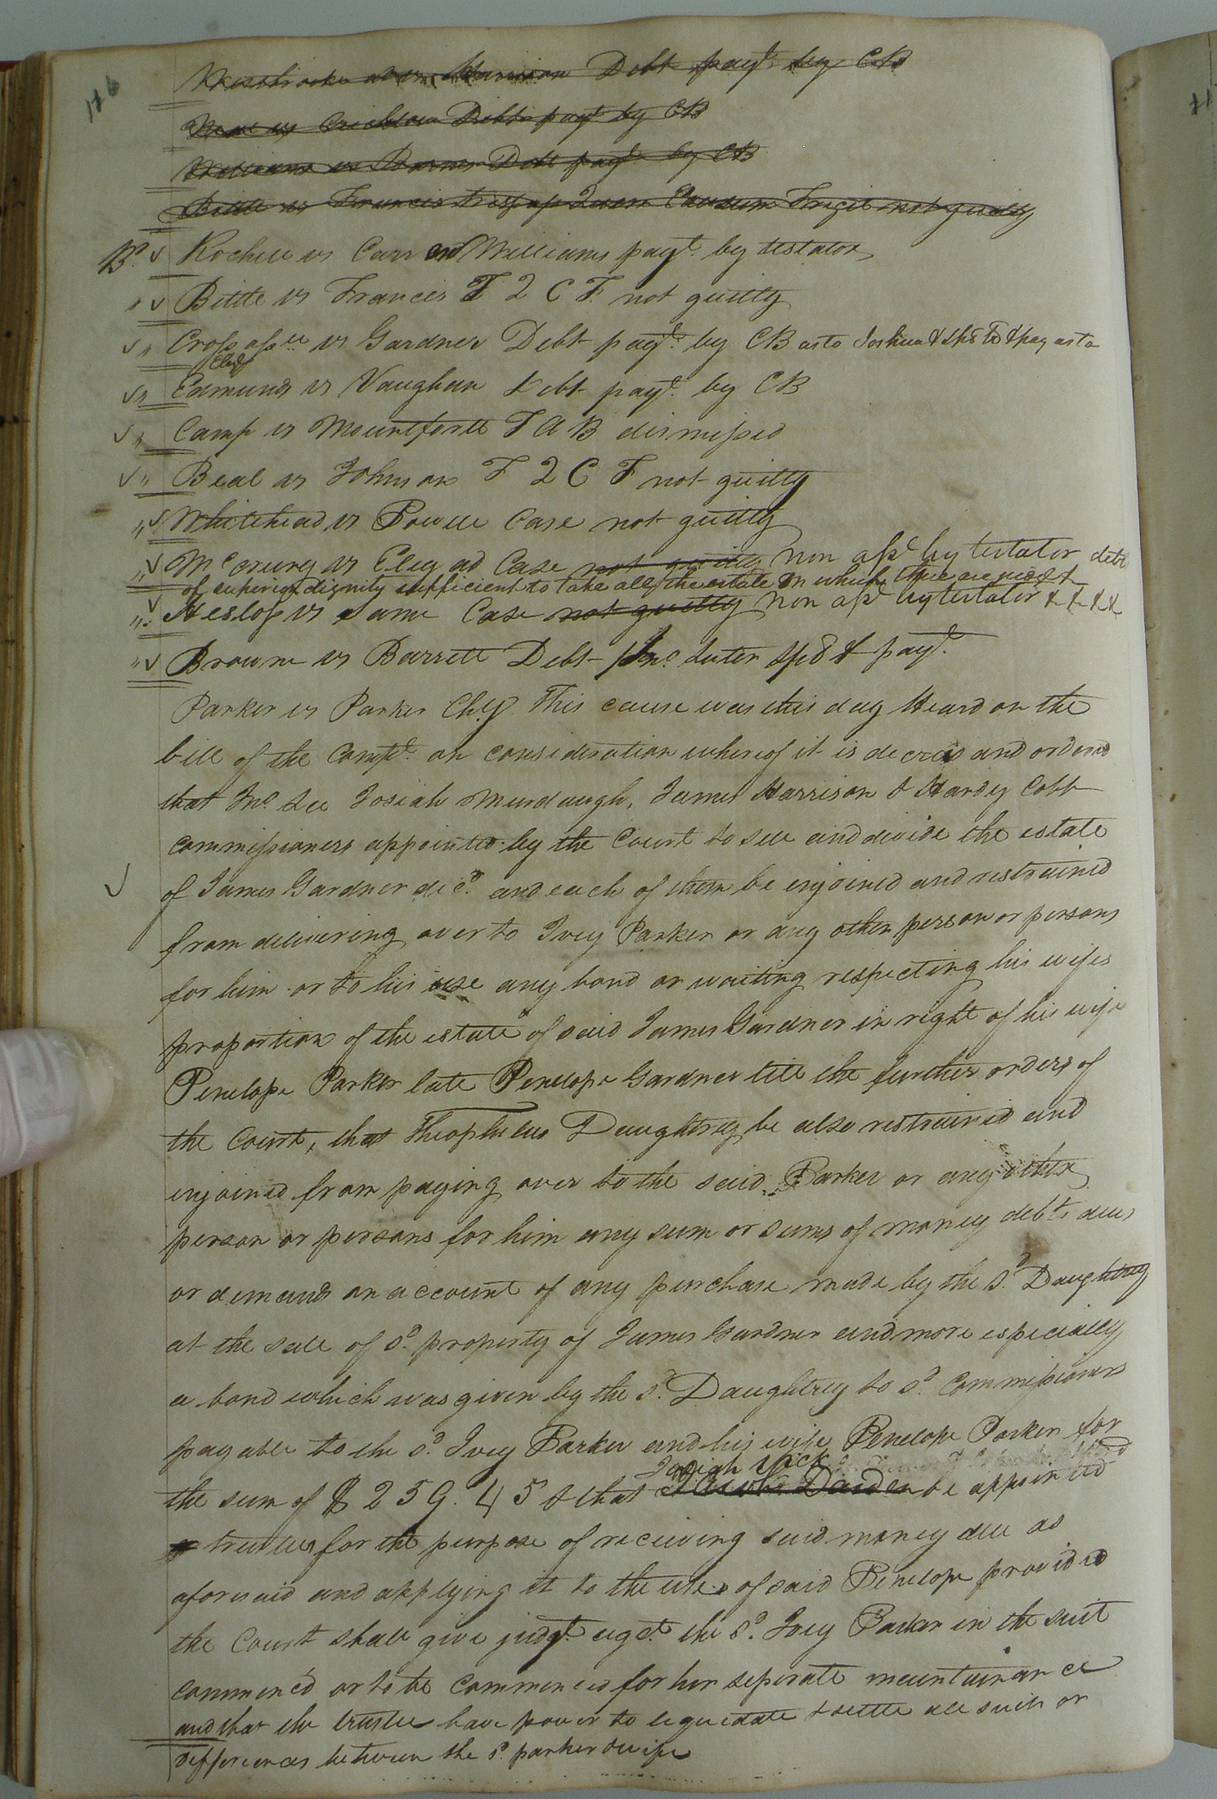 116
Westbrook vs Harrison Debt payt. by CB
vs Crichlow Debt payt by CB
Williams vs Barnes Debt payt by CB
Bittle vs Francis Tresp Quare Clausum Fregit not guilty
Bo. Rochell vs Carr Williams payt. by testator
" Bittle vs Francis T Q C F. not guilty
" Cross assee vs Gardner Debt payt. by CB as to Joshua & &pay as to
" Edmunds vs Vaughan Debt payt. by CB
" Camp vs Mountfortt T A B dismissed
" Beal vs Johnson T Q C F not guilty
" Whitehead vs Powell Case not guilty
" McCrurey vs Eley ad Case not guilty non asst by testator debts
of superior dignity sufficient to take all the estate on which there are
" Heslop vs Same Case not guilty non asst by testator & & &&
" Browne vs Barrett Debt payt.
Parker vs Parker Chy. This cause was this day Heard on the
bill of the Complt. on consideration whereof it is decreed and ordered
that Jno Lee Josiah Murdaugh, James Harrison & Hardy Cobb
commissioners appointed by the Court to sell and divide the estate
of James Gardner decd. and each of them be enjoined and restrained
from delivering over to Ivey Parker or any other person or persons
for him or to his use any bond or writing respecting his wifes
proportion of the estate of said James Gardner in right of his wife
Penelope Parker late Penelope Gardner till the further orders of
the Court, that Theophilus Daughtrey be also restrained and
enjoined from paying over to the said Parker or any other
person or persons for him any sum or sums of money debts dues
or demands on account of any purchase made by the sd. Daughtrey
at the sale of sd. property of James Gardner and more especially
a bond which was given by the sd. Daughtrey to sd. Commissioners
payable to the sd. Ivey Parker and his wife Penelope Parker for
Josiah Vick
the sum of $259.45 & that Jacob Darden be appointed
trustees for the purpose of receiving said money due as
aforesaid and applying it to the use of said Penelope provided
the Court shall give judgt. agst. the sd. Ivey Parker in the suit
commenc'd or to be commenced for her seperate maintainance
and that the trustee have power to liquidate & settle all such or
differences between the sd. parker & wife